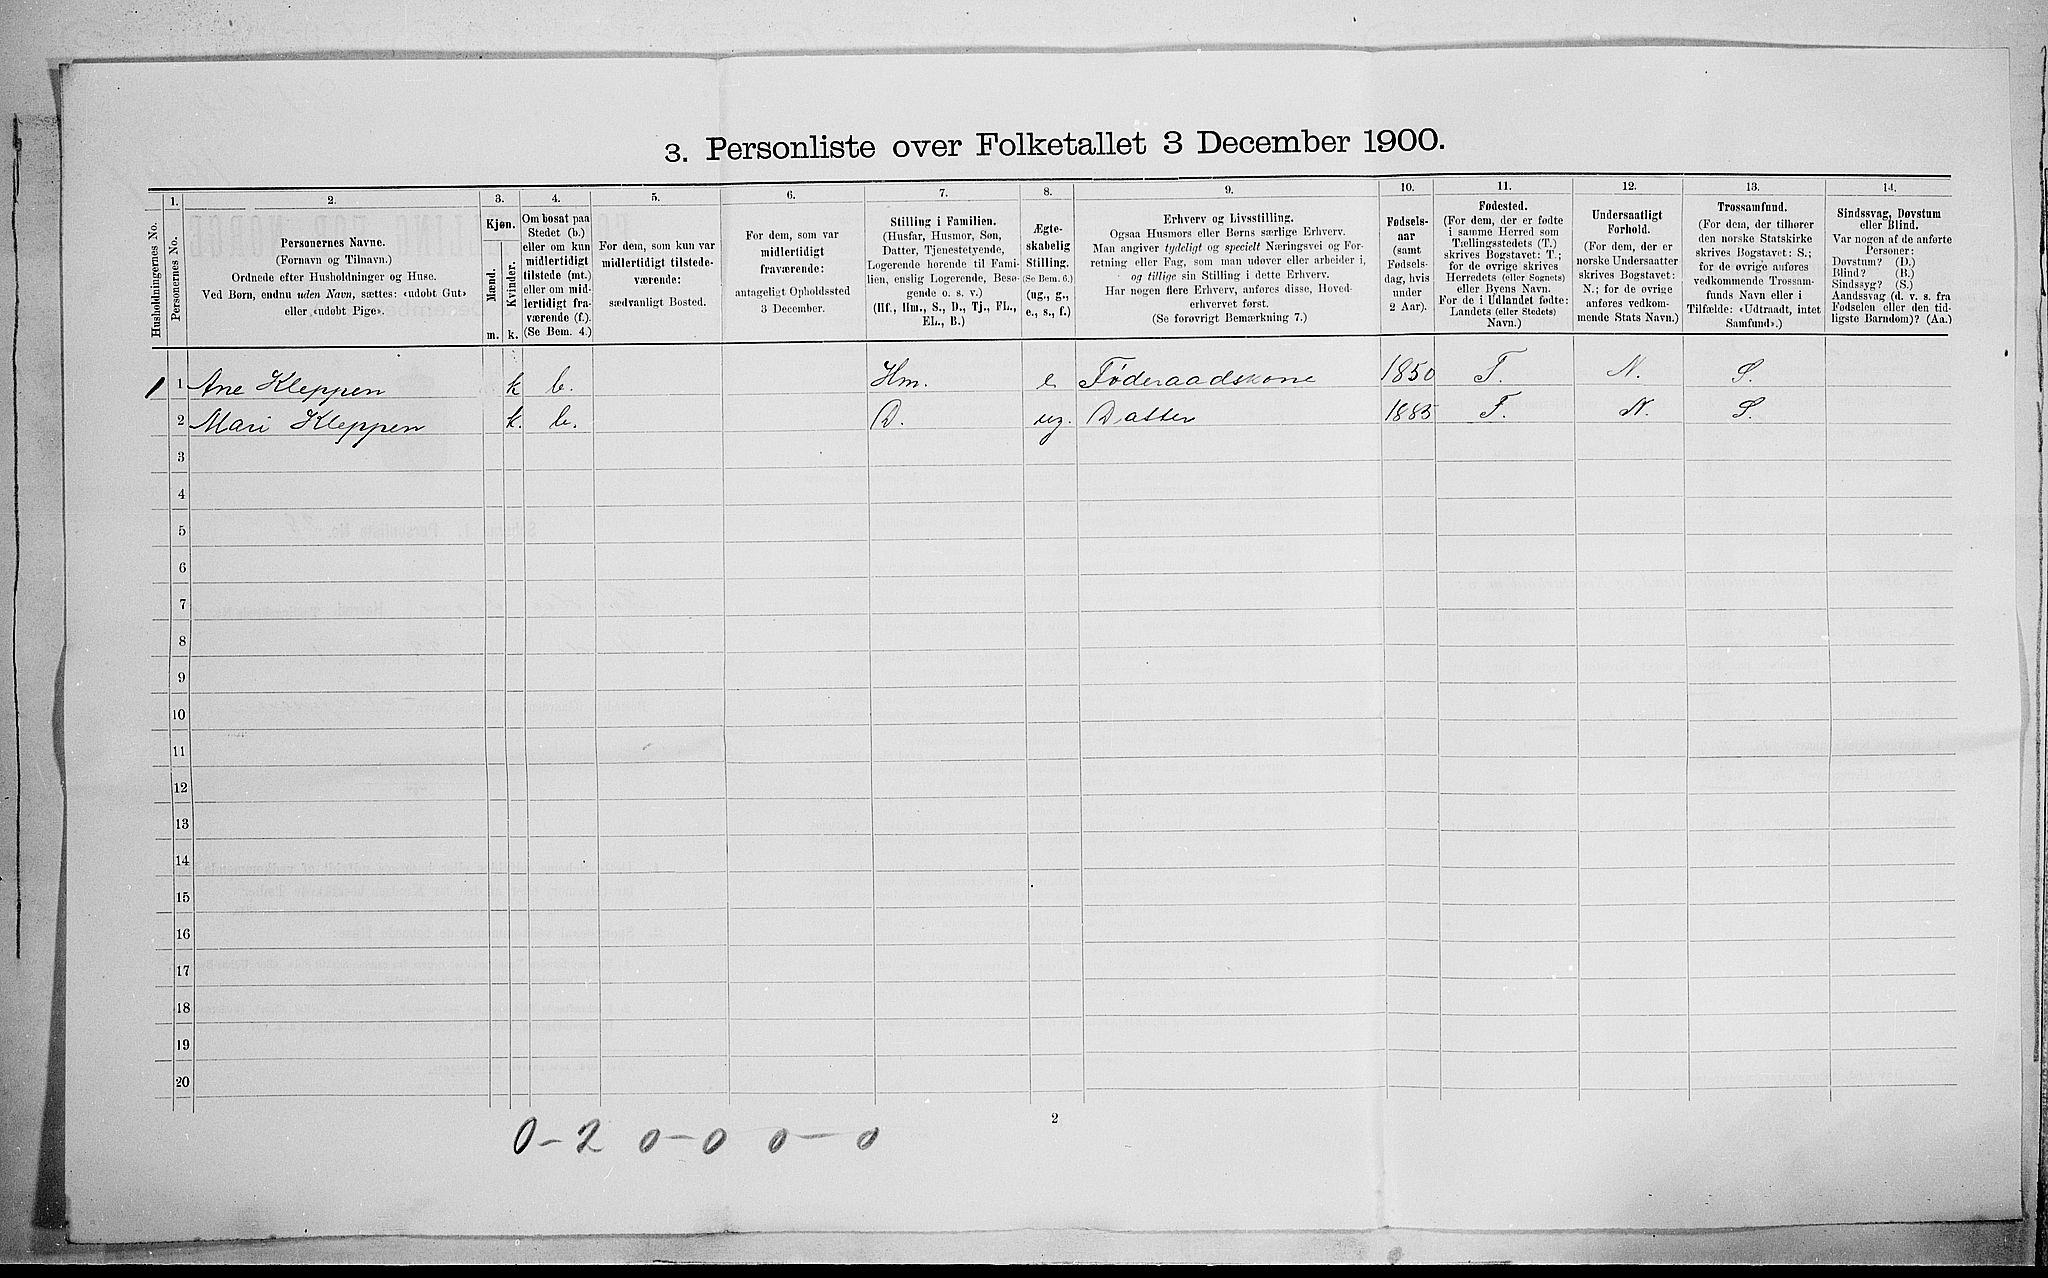 3. Personliste over Folketallet 3 December 1900.
1. 2. 3. 4. 5. 6. 7. 8. 9. 10. 11. 12. 13. 14.
Husholdningernes No.
Personernes No.
Personernes Navne.
(Fornavn og Tilnavn.)
Ordnede efter Husholdninger og Huse.
Ved Børn, endnu uden Navn, sættes: «udøbt Gut»
eller «udøbt Pige».
Kjøn.
Mænd.
Kvinder.
m. k.
Om bosat paa
Stedet (b.)
eller om kun
midlertidigt
tilstede (mt.)
eller om mid-
lertidigt fra-
værende (f.).
(Se Bem. 4.)
For dem, som kun var
midlertidigt tilstede-
værende:
sædvanligt Bosted.
For dem, som var
midlertidigt
fraværende:
antageligt Opholdssted
3 December.
Stilling i Familien.
(Husfar, Husmor, Søn,
Datter, Tjenestetyende,
Logerende hørende til Fami-
lien, enslig Logerende, Besø-
gende o. s. v.)
(Hf., Hm., S., D., Tj., FL.,
EL., B.)
Ægte-
skabelig
Stilling.
(Se Bem. 6.)
(ug., g.,
e., s., f.)
Erhverv og Livsstilling.
Ogsaa Husmors eller Børns særlige Erhverv.
Man angiver tydeligt og specielt Næringsvei og For-
retning eller Fag, som man udøver eller arbeider i,
og tillige sin Stilling i dette Erhverv.
Har nogen flere Erhverv, anføres disse, Hoved-
erhvervet først.
(Se forøvrigt Bemærkning 7.)
Fødsels-
aar
(samt
Fødsels-
dag, hvis
under
2 Aar).
Fødested.
(For dem, der er fødte
i samme Herred som
Tællingsstedets (T.)
skrives Bogstavet: T.;
for de øvrige skrives
Herredets (eller Sognets)
eller Byens Navn.
For de i Udlandet fødte:
Landets (eller Stedets)
Navn.)
Undersaatligt
Forhold.
(For dem, der er
norske Undersaatter
skrives Bogstavet:
N.; for de øvrige
anføres vedkom-
mende Stats Navn.)
Trossamfund.
(For dem, der tilhører
den norske Statskirke
skrives Bogstavet: S.;
for de øvrige anføres
vedkommende Trossam-
funds Navn eller i
Tilfælde: «Udtraadt, intet
Samfund».)
Sindssvag, Døvstum
eller Blind.
Var nogen af de anførte
Personer:
Døvstum? (D.)
Blind? (B.)
Sindssyg? (S.)
Aandssvag (d. v. s. fra
Fødselen eller den tid-
ligste Barndom)? (Aa.)
1 1 Ane Kleppen k b. Hm. e Føderaadskone 1850 T. N. S.
2 Mari Kleppen k. b. D. ug. Datter 1885 T. N. S.
3
4
5
6
7
8
9
10
11
12
13
14
15
16
17
18
19
20
2
0-2 0-0 0-0